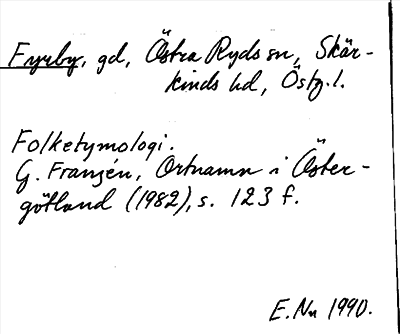 Fyrby, gd, Östra Ryds sn, Skär-
kinds hd, Östg.l.
Folketymologi.
G. Franzén, Ortnamn i Öster-
götland (1982), s. 123 f.
E. Nn 1990.